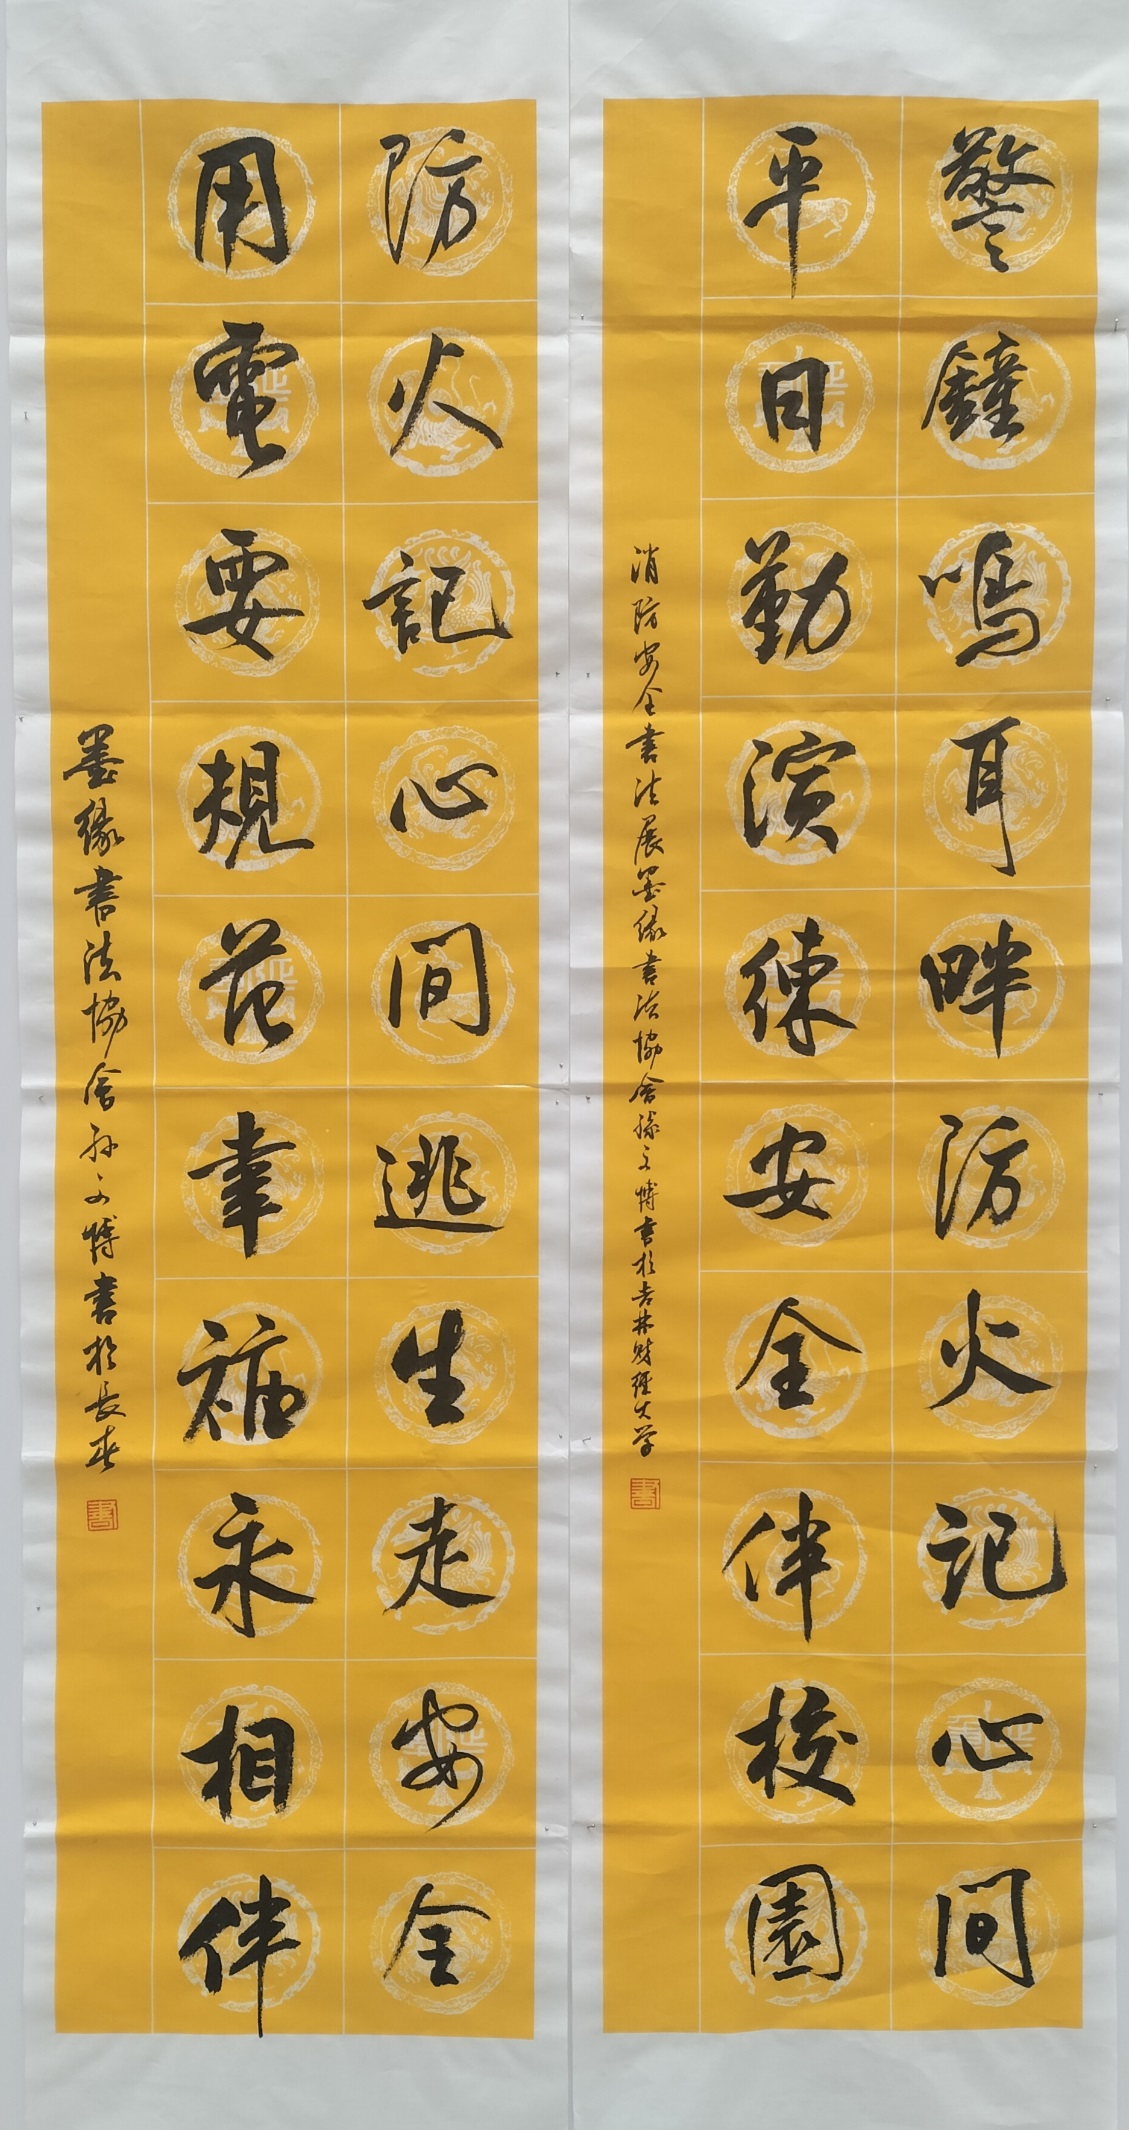 警鐘鳴耳畔防火記心間
平日勤演練安全伴校園
消防安全書法展墨缘書法協會孫文博書於吉林财经大学
書
防火記心間逃生走安全
用電要規范幸福永相伴
墨缘書法協會孙文博書於長春
書